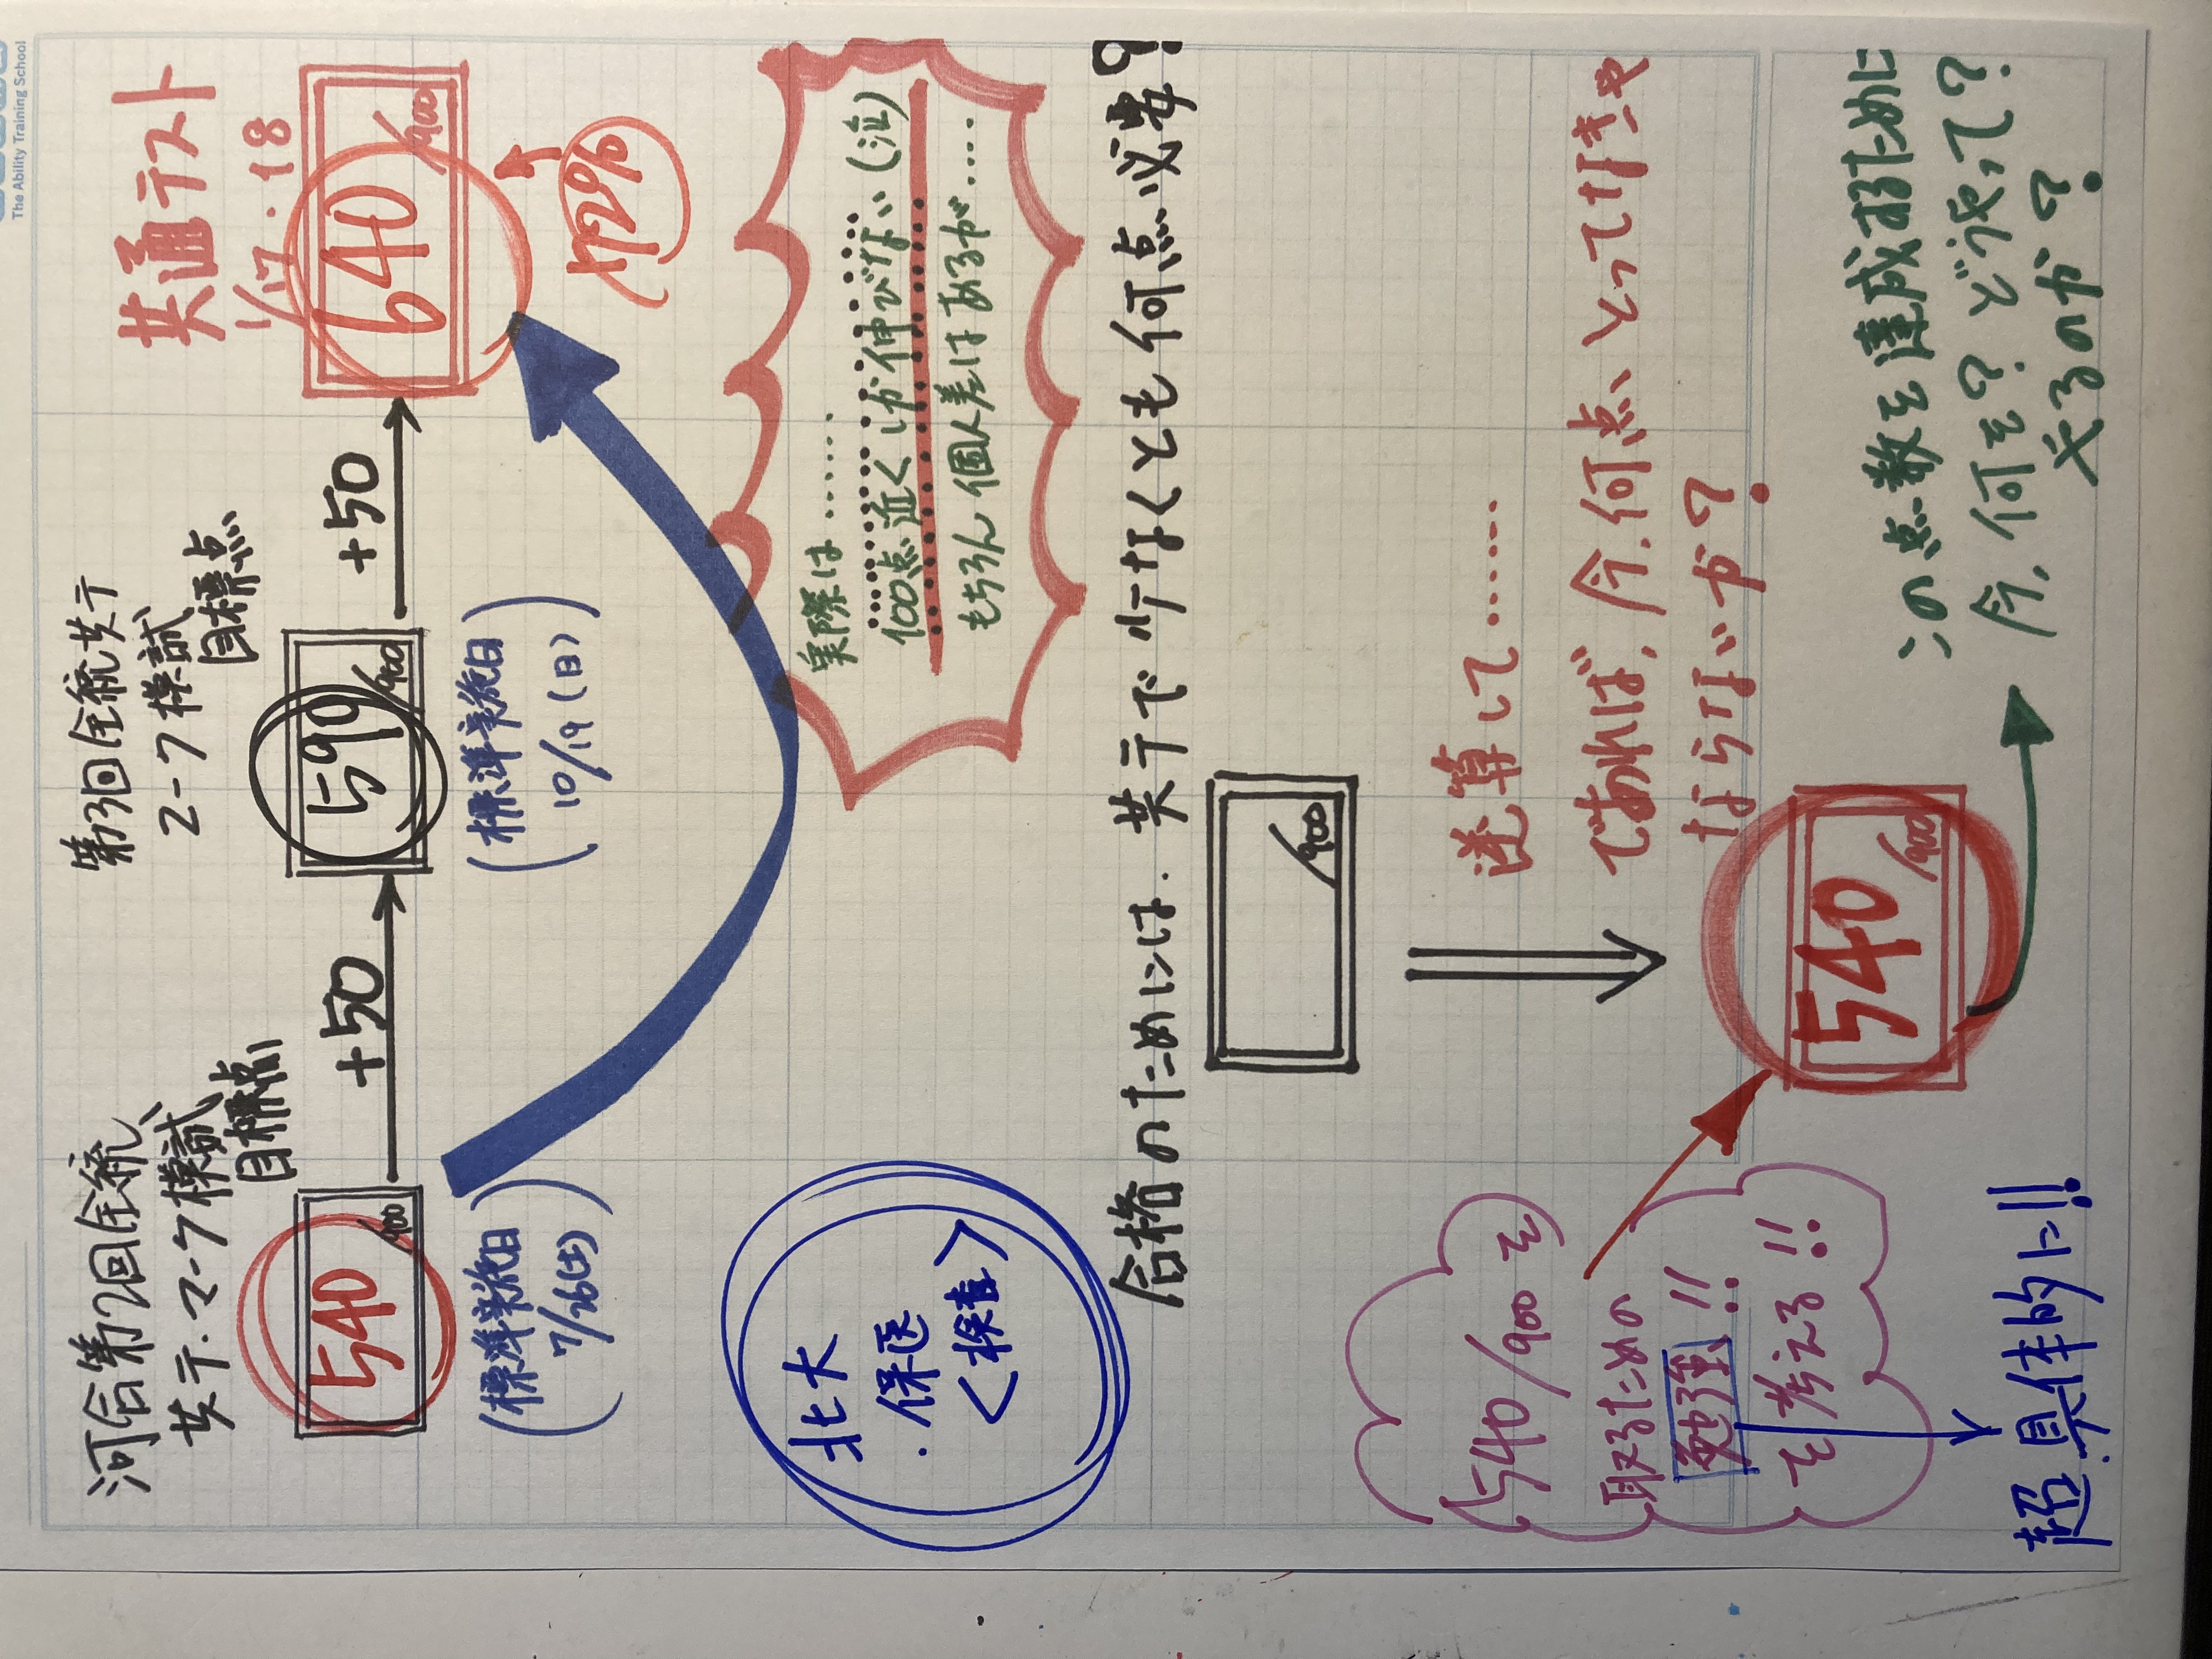 The Ability Training School
河合第2回全統
共テ.マーク模試
目標点
540/900
(標準実施日
7/26(土))
+50
第3回全統共テ
マーク模試
目標点
590/900
(標準実施日
10/19(日))
+50
共通テスト
1/17.18
640/900
実際は……
100点近くしか伸びない(泣)
もちろん個人差はあるが……
北大
・保医
<検査>
合格のためには、共テで少なくとも何点必要?
/900
逆算して……
であれば、今、何点、とってなきゃ
ならないか?
540/900
540/900を
取るための
勉強!!
を考える!!
超具体的に!!
この点数を達成するために
今、何を?どうやって?
やるのか?